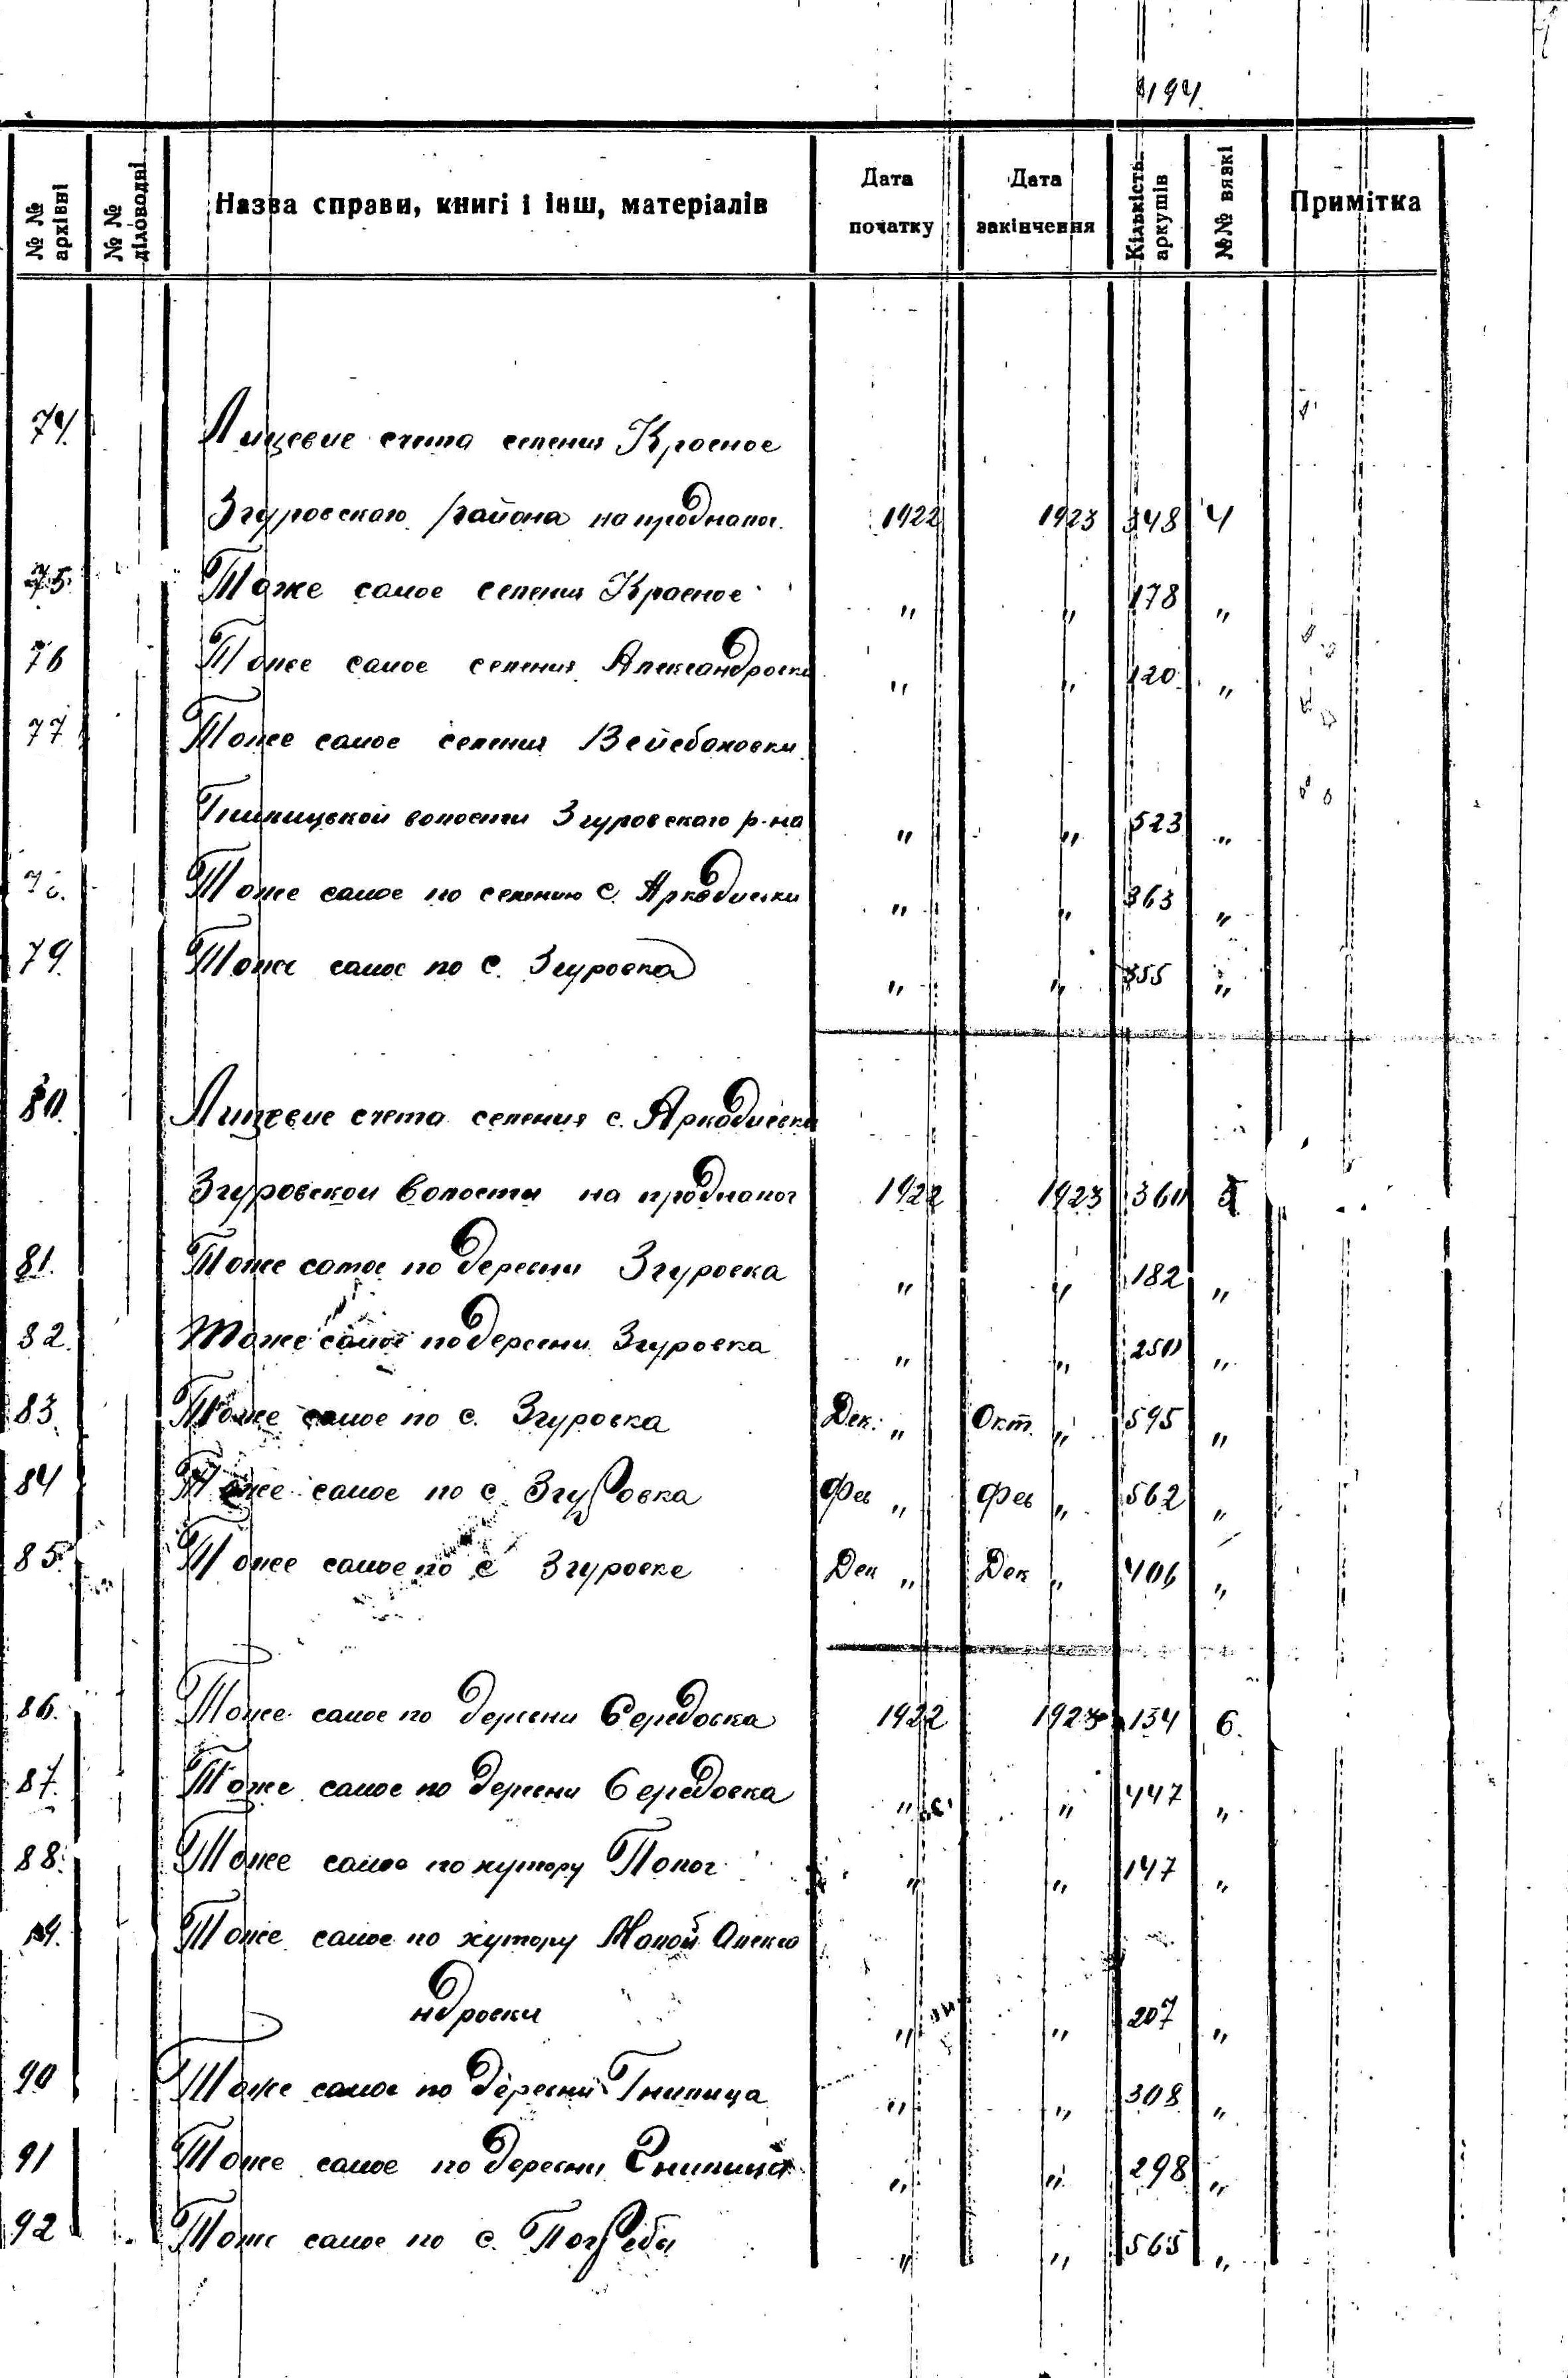 194
№ № архівні № № діловодні Назва справи, книгі і інш, матеріалів Дата початку Дата закінчення Кількість аркушів №№ вязкі Примітка
74. Лицевие счета селения Красное
Згуровскаго района на проднапог. 1922 1923 348 4
75. Тоже самое селения Красное " " 178 "
76 Тоже самое селения Александровки " " 120 "
77 Тоже самое селения Вейсбаховки
Гнилицькой волости Згуровскаго р-на " " 523 "
78. Тоже самое по селению с. Аркадиевки " " 363 "
79. Тоже самое по с. Згуровка " " 355 "
80. Лицевие счета селения с. Аркадиевка
Згуровской волости на продналог 1922 1923 360 5
81. Тоже самое по деревни Згуровка " " 182 "
82. Тоже самое по деревни Згуровка " " 250 "
83. Тоже самое по с. Згуровка Дек. " Окт. " 595 "
84 Тоже самое по с. Згуровка Фев " Фев " 562 "
85. Тоже самое по с Згуровке Дек " Дек " 406 "
86. Тоже самое по деревни Середовка 1922 1923 134 6.
87. Тоже самое по деревни Середовка " " 447 "
88. Тоже самое по хутору Полог " " 147 "
89. Тоже самое по хутору Малой Алекса
ндровки " " 207 "
90 Тоже самое по деревни Гнилица " " 308 "
91 Тоже самое по деревни Гнилица " " 298 "
92 Тоже самое по с. Погребы " " 565 "